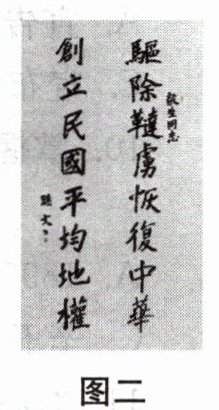 驅除韃虜恢復中華
創立民國平均地權
孫文
图二